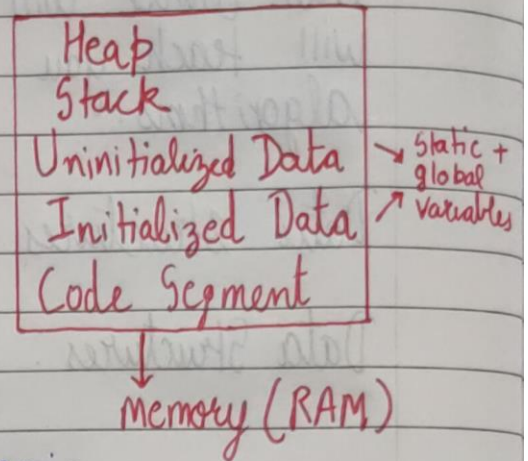 Heap
Stack
Uninitialized Data
Initialized Data
Code Segment
Static +
global
variables
Memory (RAM)
Data Structures